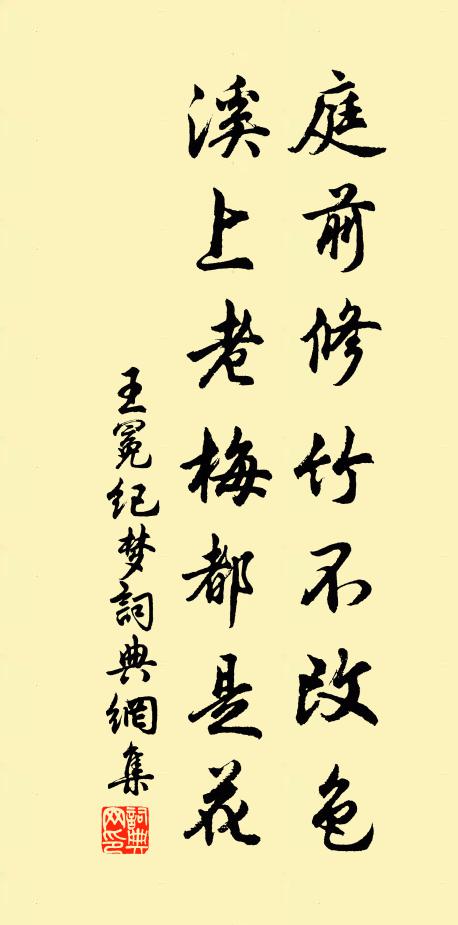 庭前修竹不改色
溪上老梅都是花
王冕纪梦詞典網集
詞典网印